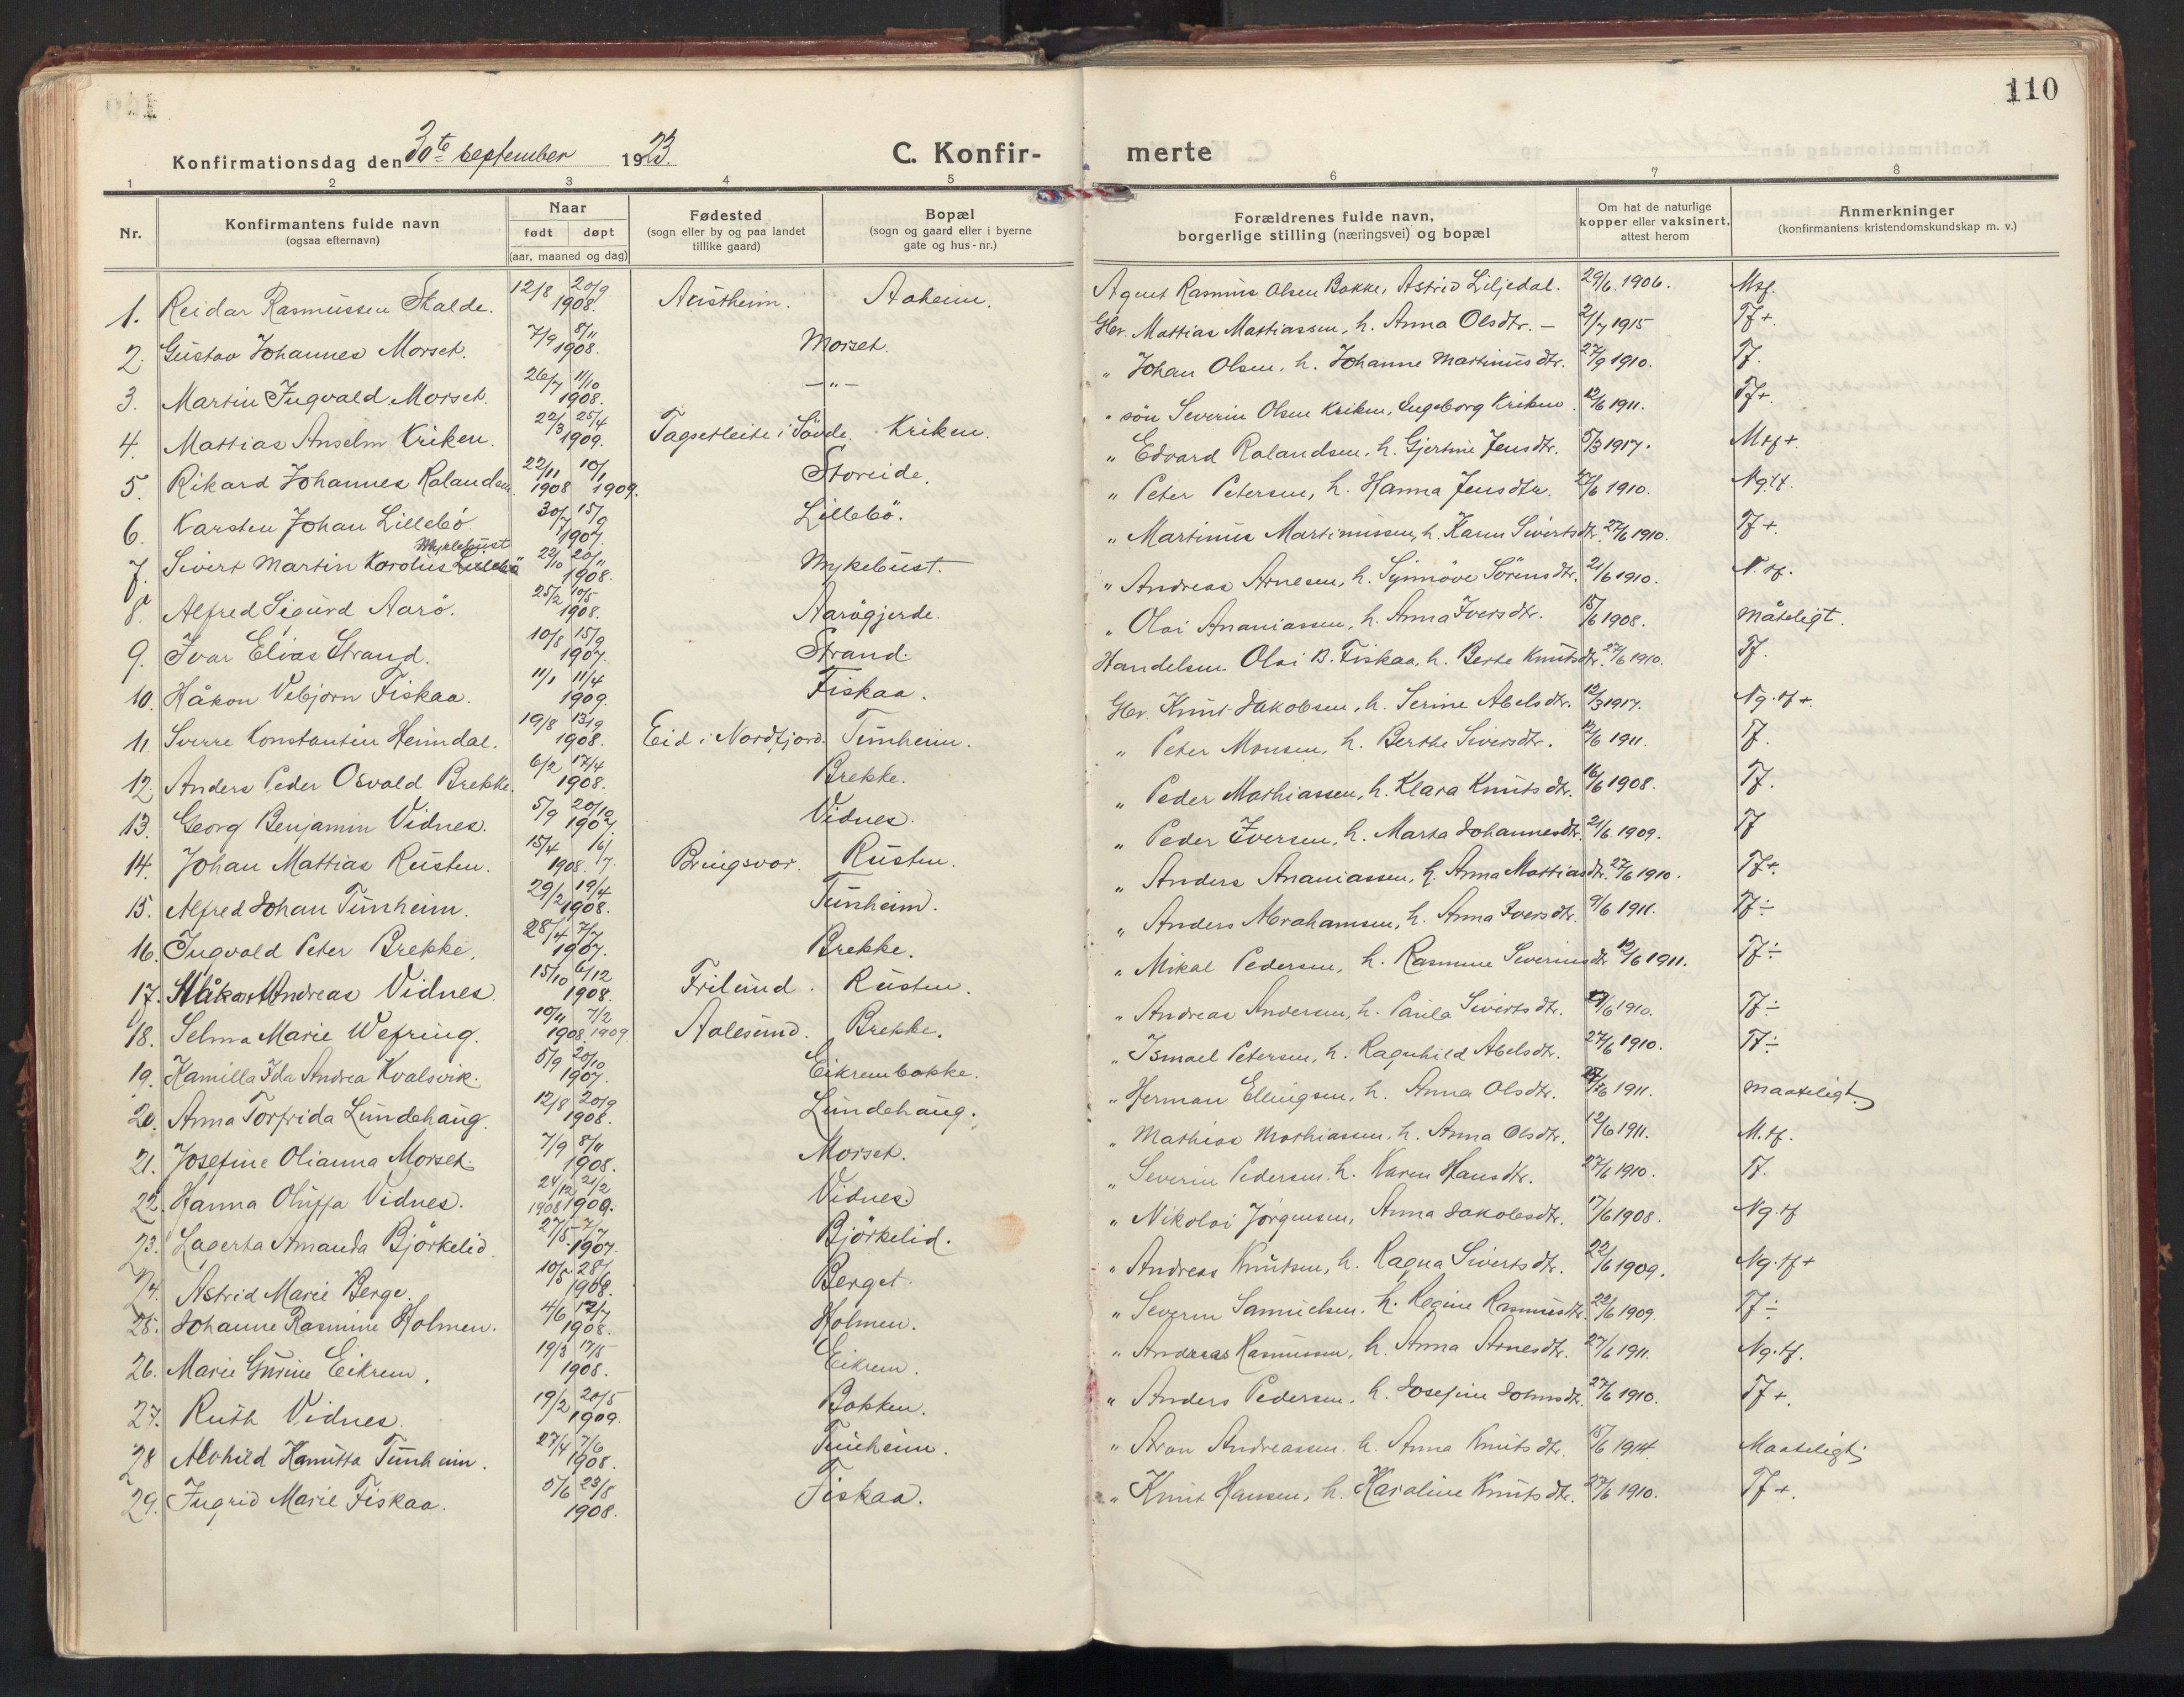 110
Konfirmationsdag den 30te september 1923. C. Konfir- merte
1 2 3 4 5 6 7 8
Nr. Konfirmantens fulde navn (ogsaa efternavn) Naar født døpt (aar, maaned og dag) Fødested (sogn eller by og paa landet tillike gaard) Bopæl (sogn og gaard eller i byerne gate og hus-nr.) Forældrenes fulde navn, borgerlige stilling (næringsvei) og bopæl Om hat de naturlige kopper eller vaksinert, attest herom Anmerkninger (konfirmantens kristendomskundskap m. v.)
1. Reidar Rasmussen Skalde. 12/8 20/9 1908. Austheim. Aaheim. Agent Rasmus Olsen Bakke, Astrid Liljedal. 29/6. 1906. Mtf.
2. Gustav Johannes Morset. 7/9 8/11 1908. Morset. Gbr. Mattias Mattiassen, h. Anna Olsdtr. — 2/7 1915 Tf+.
3. Martin Ingvald Morset. 26/7 11/10 1908. —"— " Johan Olsen, h. Johanne Martinusdtr. 27/9 1910. Tf.
4. Mattias Anselm Kriken. 22/3 25/4 1909. Tagsetleite i Søvde. Kriken. " søn Severin Olsen Kriken, Ingeborg Kriken. 12/6 1911. Tf+.
5. Rikard Johannes Rolandsen. 22/11 1908 10/1 1909. Storeide. " Edvard Rolandsen, h. Gjertine Jensdtr. 5/3 1917. Mtf+.
6. Karsten Johan Lillebö. 30/7 15/9 1907. Lillebö. " Peter Petersen, h. Hanna Jensdtr. 27/6 1910. Ngtf.
7. Sivert Martin Karolius Lillebö Myklebust 22/10 20/11 1908. Mykebust. " Martinus Martinussen, h. Karen Sivertsdtr. 27/6 1910. Tf+.
8. Alfred Sigurd Aarö. 25/2 10/5 1908. Aarögjerde. " Andreas Arnesen, h. Synnöve Sörensdtr. 21/6 1910. N.tf.
9. Ivar Elias Strand. 10/8 15/9 1907. Strand. " Olai Ananiassen, h. Anna Iversdtr. 15/6 1908. Måteligt.
10. Håkon Vebjørn Fiskaa. 11/1 11/4 1909. Fiskaa. Handelsm. Olai B. Fiskaa, h. Berte Knutsdtr. 27/6 1910. Tf.
11. Sverre Konstantin Heimdal. 19/8 13/9 1908. Eid i Nordfjord. Tunheim. Gbr. Knut Jakobsen, h. Serine Abelsdtr. 12/3 1917. Ng.tf+.
12. Anders Peder Osvald Brekke. 6/2 17/4 1908. Brekke. " Peter Monsen, h. Berthe Siversdtr. 12/6 1911. Tf.
13. Georg Benjamin Vidnes. 5/9 20/10 1907 Vidnes. " Peder Mathiassen, h. Klara Knutsdtr. 16/6 1908. Tf.
14. Johan Mattias Rusten. 15/4 1908. Bringsvor. Rusten. " Peder Iversen, h. Marta Johannesdtr. 21/6 1909. Tf
15. Alfred Johan Tunheim. 29/2 19/4 1908. Tunheim. " Anders Ananiassen, h. Anna Mattiasdtr. 27/6 1910. Tf+.
16. Ingvald Peter Brekke. 28/4 7/7 1907. Brekke. " Anders Abrahamsen, h. Anna Iversdtr. 9/6 1911. Tf÷
17. Håkon Andreas Vidnes 15/10 6/12 1908. Frilund. Rusten. " Mikal Pedersen, h. Rasmine Severinsdtr 12/6 1911. Tf÷
18. Selma Marie Wefring. 10/11 1908 7/2 1909 Aalesund. Brekke. " Andreas Andersen, h. Paula Sivertsdtr. 27/6 1910. Tf÷
19. Kamilla Ida Andrea Kvalsvik. 5/9 20/10 1907. Eikrembakke. " Ismael Petersen, h. Ragnhild Abelsdtr. 27/6 1910. Tf÷
20. Anna Torfrida Lundehaug. 12/8 20/9 1908. Lundehaug. " Herman Ellingsen, h. Anna Olsdtr. 1911. Maateligt.
21. Josefine Olianna Morset. 7/9 8/11 1908. Morset. " Mathias Mathiassen, h. Anna Olsdtr. 12/6 1911. M.tf.
22. Hanna Oluffa Vidnes. 24/12 1908 21/2 1909. Vidnes. " Severin Pedersen, h. Karen Hansdtr. 27/6 1910. Tf.
23. Lagerta Amanda Björkelid. 27/5 7/7 1907. Björkelid. " Nikolai Jörgensen, Anna Jakobsdtr. 17/6 1908. Ng.tf
24. Astrid Marie Berge. 10/5 1908. Berget. " Andreas Knutsen, h. Ragna Sivertsdtr. 22/6 1909. Ng.tf+
25. Johanne Rasmine Holmen. 4/6 12/7 1908. Holmen. " Severin Samuelsen, h. Regine Rasmusdtr. 22/6 1909. Tf÷
26. Marie Gurine Eikrem. 19/3 17/5 1908. Eikrem. " Andreas Rasmussen, h. Anna Arnesdtr. 27/6 1911. Ng.tf.
27. Ruth Vidnes. 19/2 20/5 1909. Bakken. " Anders Pedersen, h. Josefine Johnsdtr. 27/6 1910. Tf+.
28 Alvhild Kanutta Tunheim. 27/4 7/6 1908. Tunheim. " Aron Andreassen, h. Anna Knutsdtr. 15/6 1914. Maateligt.
29. Ingrid Marie Fiskaa. 5/6 23/8 1908. Fiskaa. " Knut Hansen, h. Karoline Knutsdtr. 27/6 1910. Tf+.